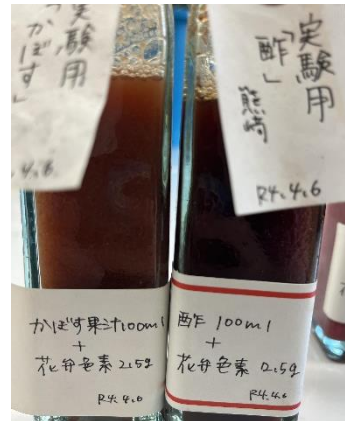 実験用
「かぼす」
4.6
実験用
「酢」
熊崎
R4.4.6
かぼす果汁100ml
+
花弁色素2.5g
R4.4.6
酢 100ml
+
花弁色素 2.5g
R4.4.6